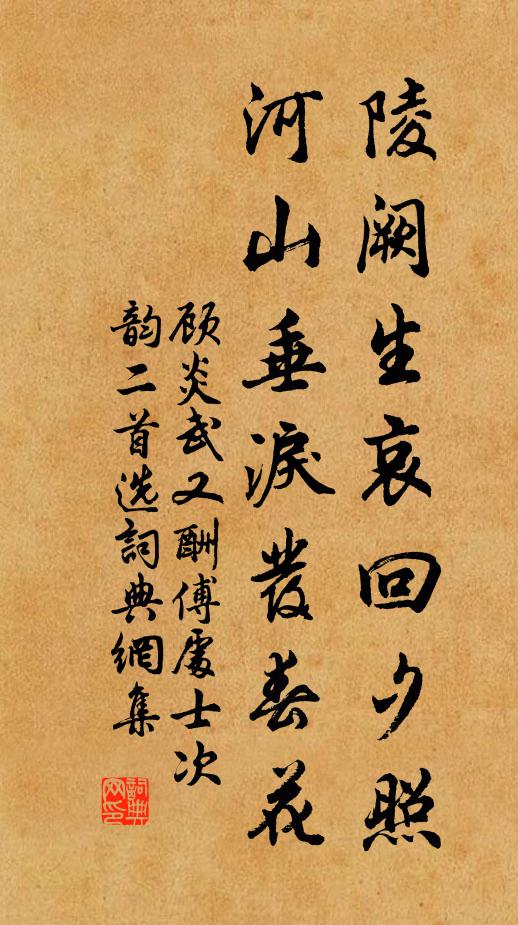 陵阙生哀回夕照
河山垂淚發春花
顾炎武又酬傅處士次
韵二首选詞典網集
詞典
网印